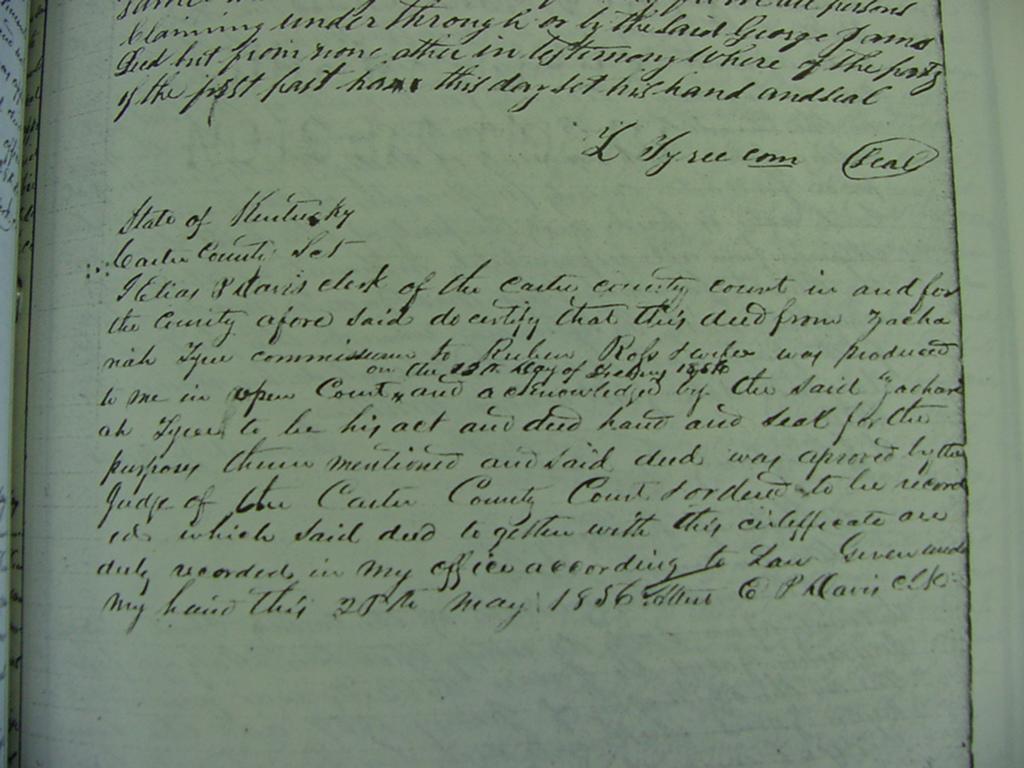 claiming under through or by the said George James
Ded but from none other in testimony where of the party
of the first part have this day set his hand and seal
Z Tyree com Seal
State of Kentucky
Carter County Sct
I Elias P Davis clerk of the carter county court in and for
the county afore said do certify that this deed from Zacha
riah Tyree commissioner to Reuben Ross & wife was produced
on the 15th day of 1856
to me in open Court and acknowledged by the said Zachari
ah Tyree to be his act and deed hand and seal for the
purposes therein mentioned and said deed was aproved by the
Judge of the Carter County Court & ordered to be record
ed which said deed to gether with this certifficate are
duly recorded in my office according to Law Given under
my hand this 28th May 1856 E P Davis Clk